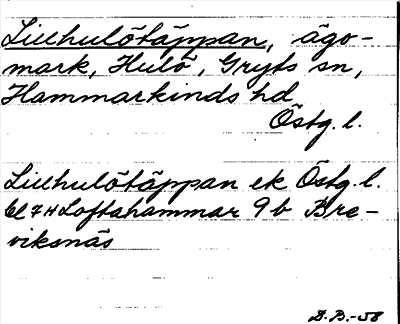 Lillhulötäppan, ägo-
mark, Hulö, Gryts sn,
Hammarkinds hd
Östg. l.
Lillhulötäppan ek Östg. l.
Bl 7H Loftahammar 9b Bre-
viksnäs
D.B.-58